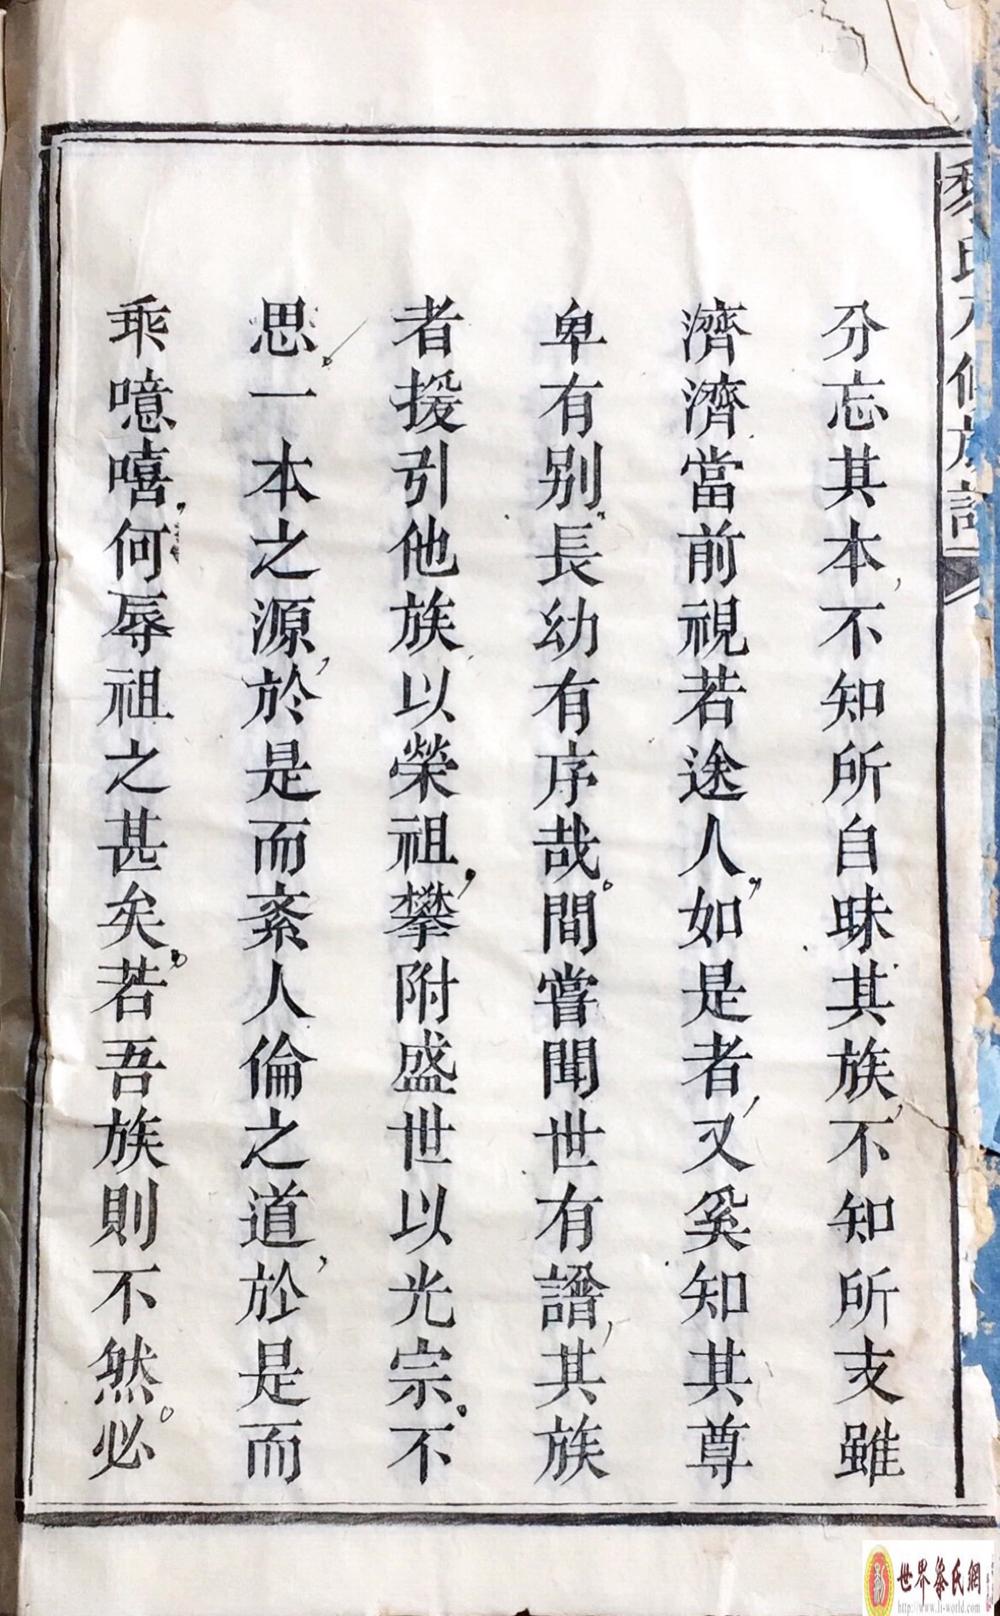 分忘其本不知所自昧其族不知所支雖
濟濟當前視若途人如是者又奚知其尊
卑有别長幼有序哉間嘗聞世有譜其族
者援引他族以榮祖攀附盛世以光宗不
思一本之源於是而紊人倫之道於是而
乖噫嘻何辱祖之甚矣若吾族則不然必
氏
修族
世界黎氏網